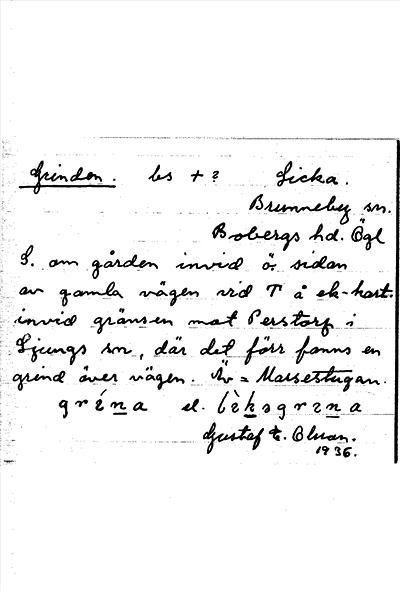 Grinden. bs + ? Sicka.
Brunneby sn.
Bobergs hd. Ögl
S. om gården invid ö. sidan
av gamla vägen vid T å ek-kart.
invid gränsen mot Perstorp i
Ljungs sn, där det förr fanns en
grind över vägen. Äv = Massestugan.
gréna el.
Gustaf E. Olsson.
1936.